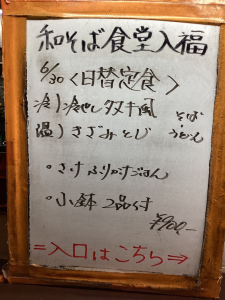 和そば食堂入福
6/30〈日替定食〉
冷)冷やしタヌキ風 そば
温)きざみとじ うどん
・さけふりかけごはん
・小鉢 2品付
¥900-
=入口はこちら⇒